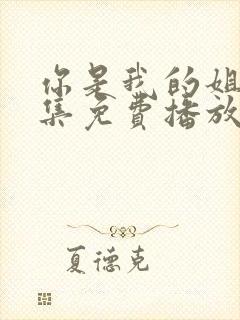 你是我的姐
集免費播放
夏德克